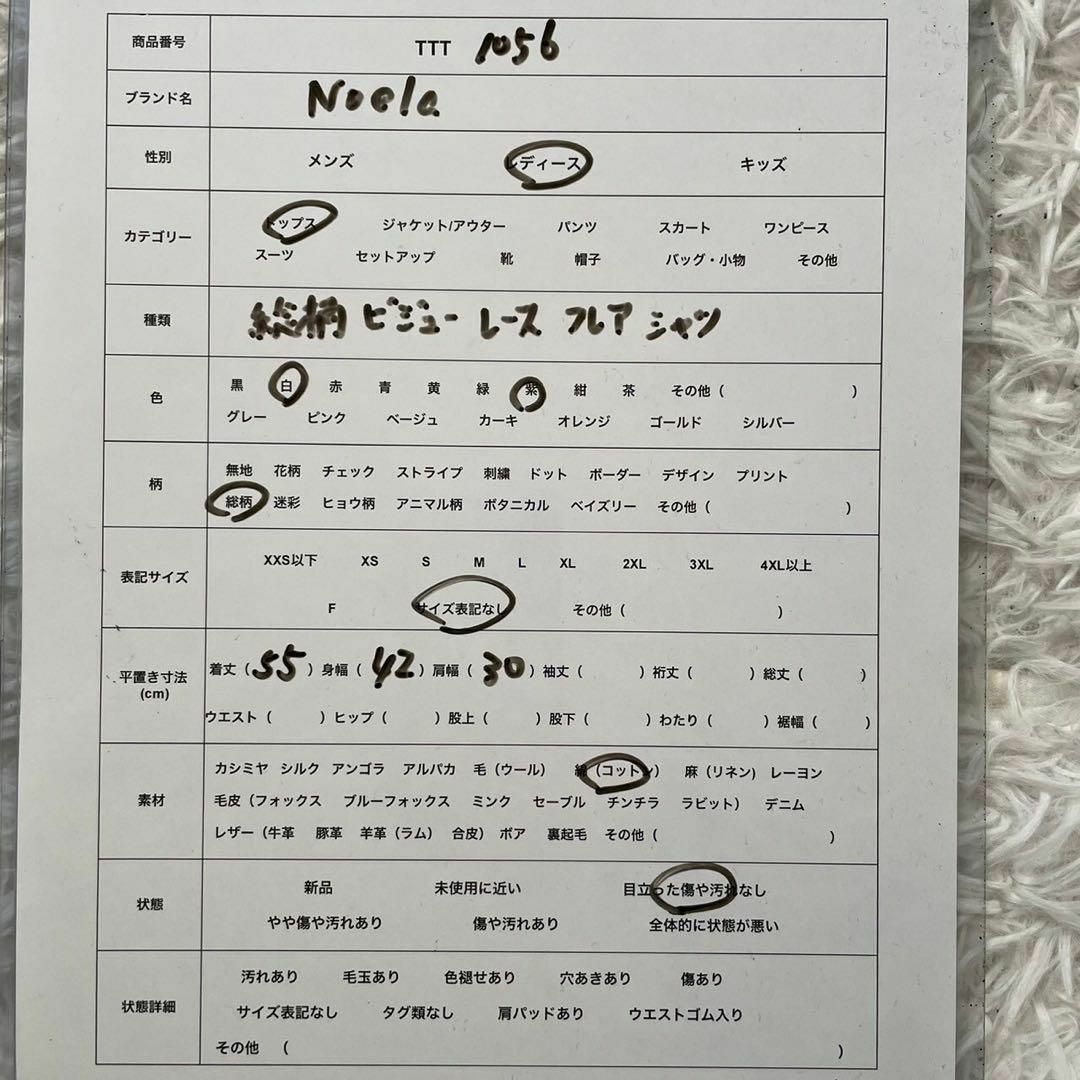 商品番号 TTT 1056
ブランド名 Noela
性別 メンズ レディース キッズ
カテゴリー トップス ジャケット/アウター パンツ スカート ワンピース
スーツ セットアップ 靴 帽子 バッグ・小物 その他
種類 総柄 ビジュー レース フレア シャツ
色 黒 白 赤 青 黄 緑 紫 紺 茶 その他（ ）
グレー ピンク ベージュ カーキ オレンジ ゴールド シルバー
柄 無地 花柄 チェック ストライプ 刺繍 ドット ボーダー デザイン プリント
総柄 迷彩 ヒョウ柄 アニマル柄 ボタニカル ペイズリー その他（ ）
表記サイズ XXS以下 XS S M L XL 2XL 3XL 4XL以上
F サイズ表記なし その他（ ）
平置き寸法 (cm) 着丈（55）身幅（42）肩幅（30）袖丈（ ）裄丈（ ）総丈（ ）
ウエスト（ ）ヒップ（ ）股上（ ）股下（ ）わたり（ ）裾幅（ ）
素材 カシミヤ シルク アンゴラ アルパカ 毛（ウール） 綿（コットン） 麻（リネン） レーヨン
毛皮（フォックス ブルーフォックス ミンク セーブル チンチラ ラビット） デニム
レザー（牛革 豚革 羊革（ラム） 合皮） ボア 裏起毛 その他（ ）
状態 新品 未使用に近い 目立った傷や汚れなし
やや傷や汚れあり 傷や汚れあり 全体的に状態が悪い
状態詳細 汚れあり 毛玉あり 色褪せあり 穴あきあり 傷あり
サイズ表記なし タグ類なし 肩パッドあり ウエストゴム入り
その他 （ ）